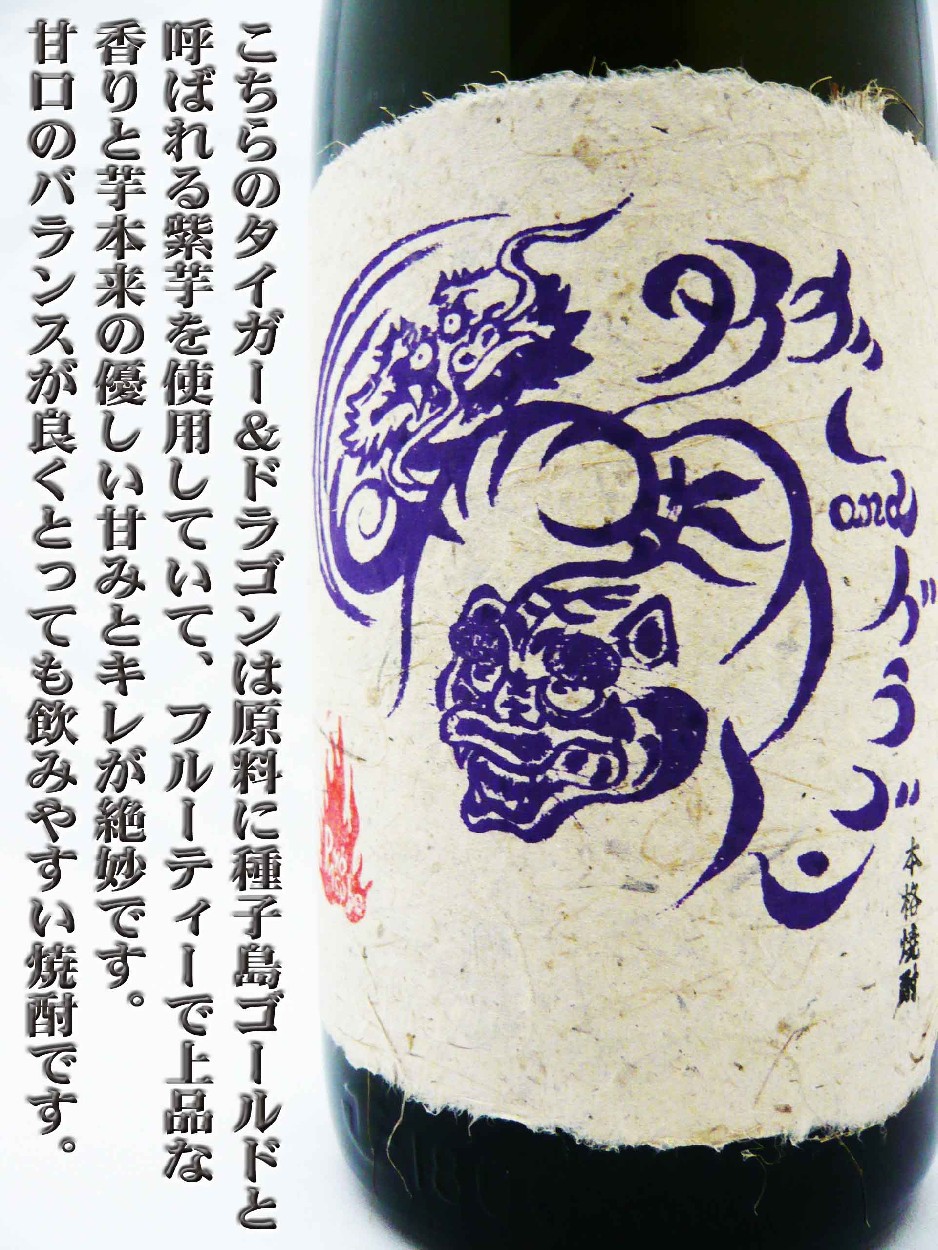 こちらのタイガー＆ドラゴンは原料に種子島ゴールドと
呼ばれる紫芋を使用していて、フルーティーで上品な
香りと芋本来の優しい甘みとキレが絶妙です。
甘口のバランスが良くとっても飲みやすい焼酎です。
and
本格焼酎